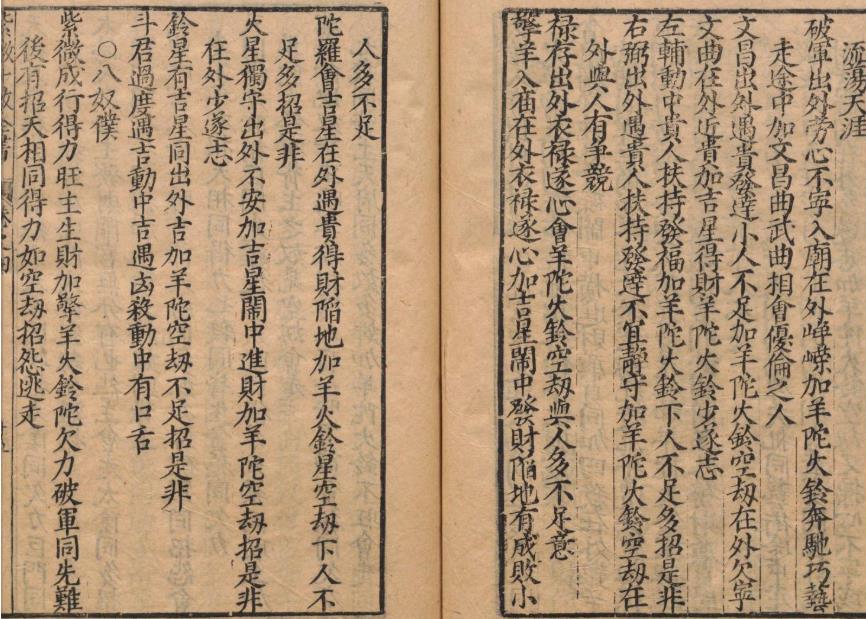 流蕩天涯
破軍出外劳心不寜入廟在外崢嶸加羊陀火鈴奔馳巧藝
走途中加文昌曲武曲相會優倫之人
文昌出外遇貴發達小人不足加羊陀火鈴空劫在外欠寜
文曲在外近貴加吉星得財羊陀火鈴少遂志
左輔動中貴人扶持發福加羊陀火鈴下人不足多招是非
右弼出外遇貴人扶持發達不宜靜守加羊陀火鈴空劫在
外與人有爭競
禄存出外衣禄遂心會羊陀火鈴空劫與人多不足意
擎羊入庙在外衣禄遂心加吉星鬧中發財陷地有成敗小
人多不足
陀羅會吉星在外遇貴得財陷地加羊火鈴星空劫下人不
足多招是非
火星獨守出外不安加吉星鬧中進財加羊陀空劫招是非
在外少遂志
鈴星有吉星同出外吉加羊陀空劫不足招是非
斗君過度遇吉動中吉遇凶殺動中有口舌
○八奴僕
紫微成行得力旺主生財加擎羊火鈴陀欠力破軍同先難
後有招天相同得力如空劫招怨逃走